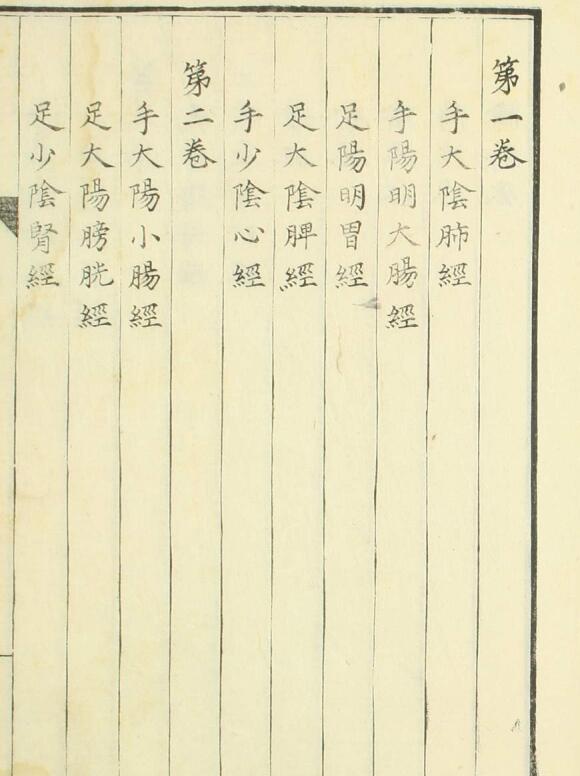 第一卷
手大陰肺經
手陽明大腸經
足陽明胃經
足大陰脾經
手少陰心經
第二卷
手大陽小腸經
足大陽膀胱經
足少陰腎經